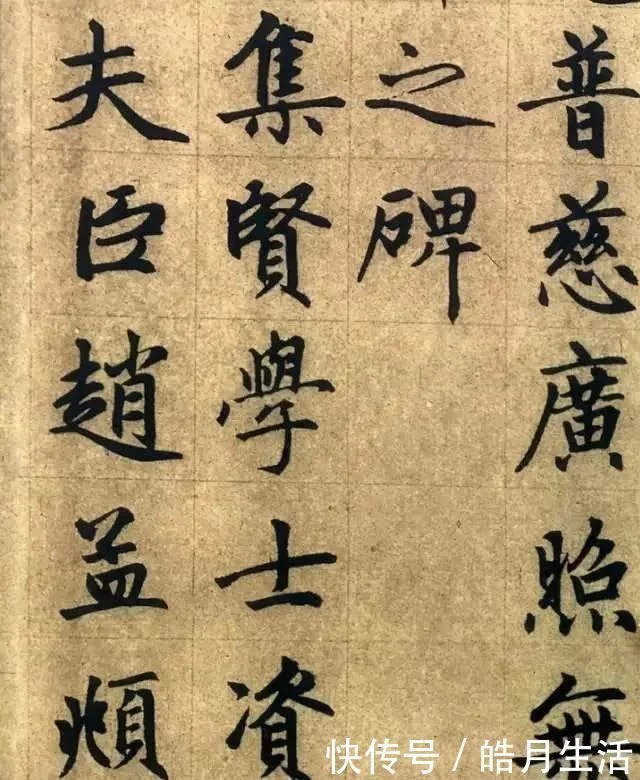 普慈廣照無
之碑
集賢學士資
夫臣趙孟頫
快传号 / 皓月生活